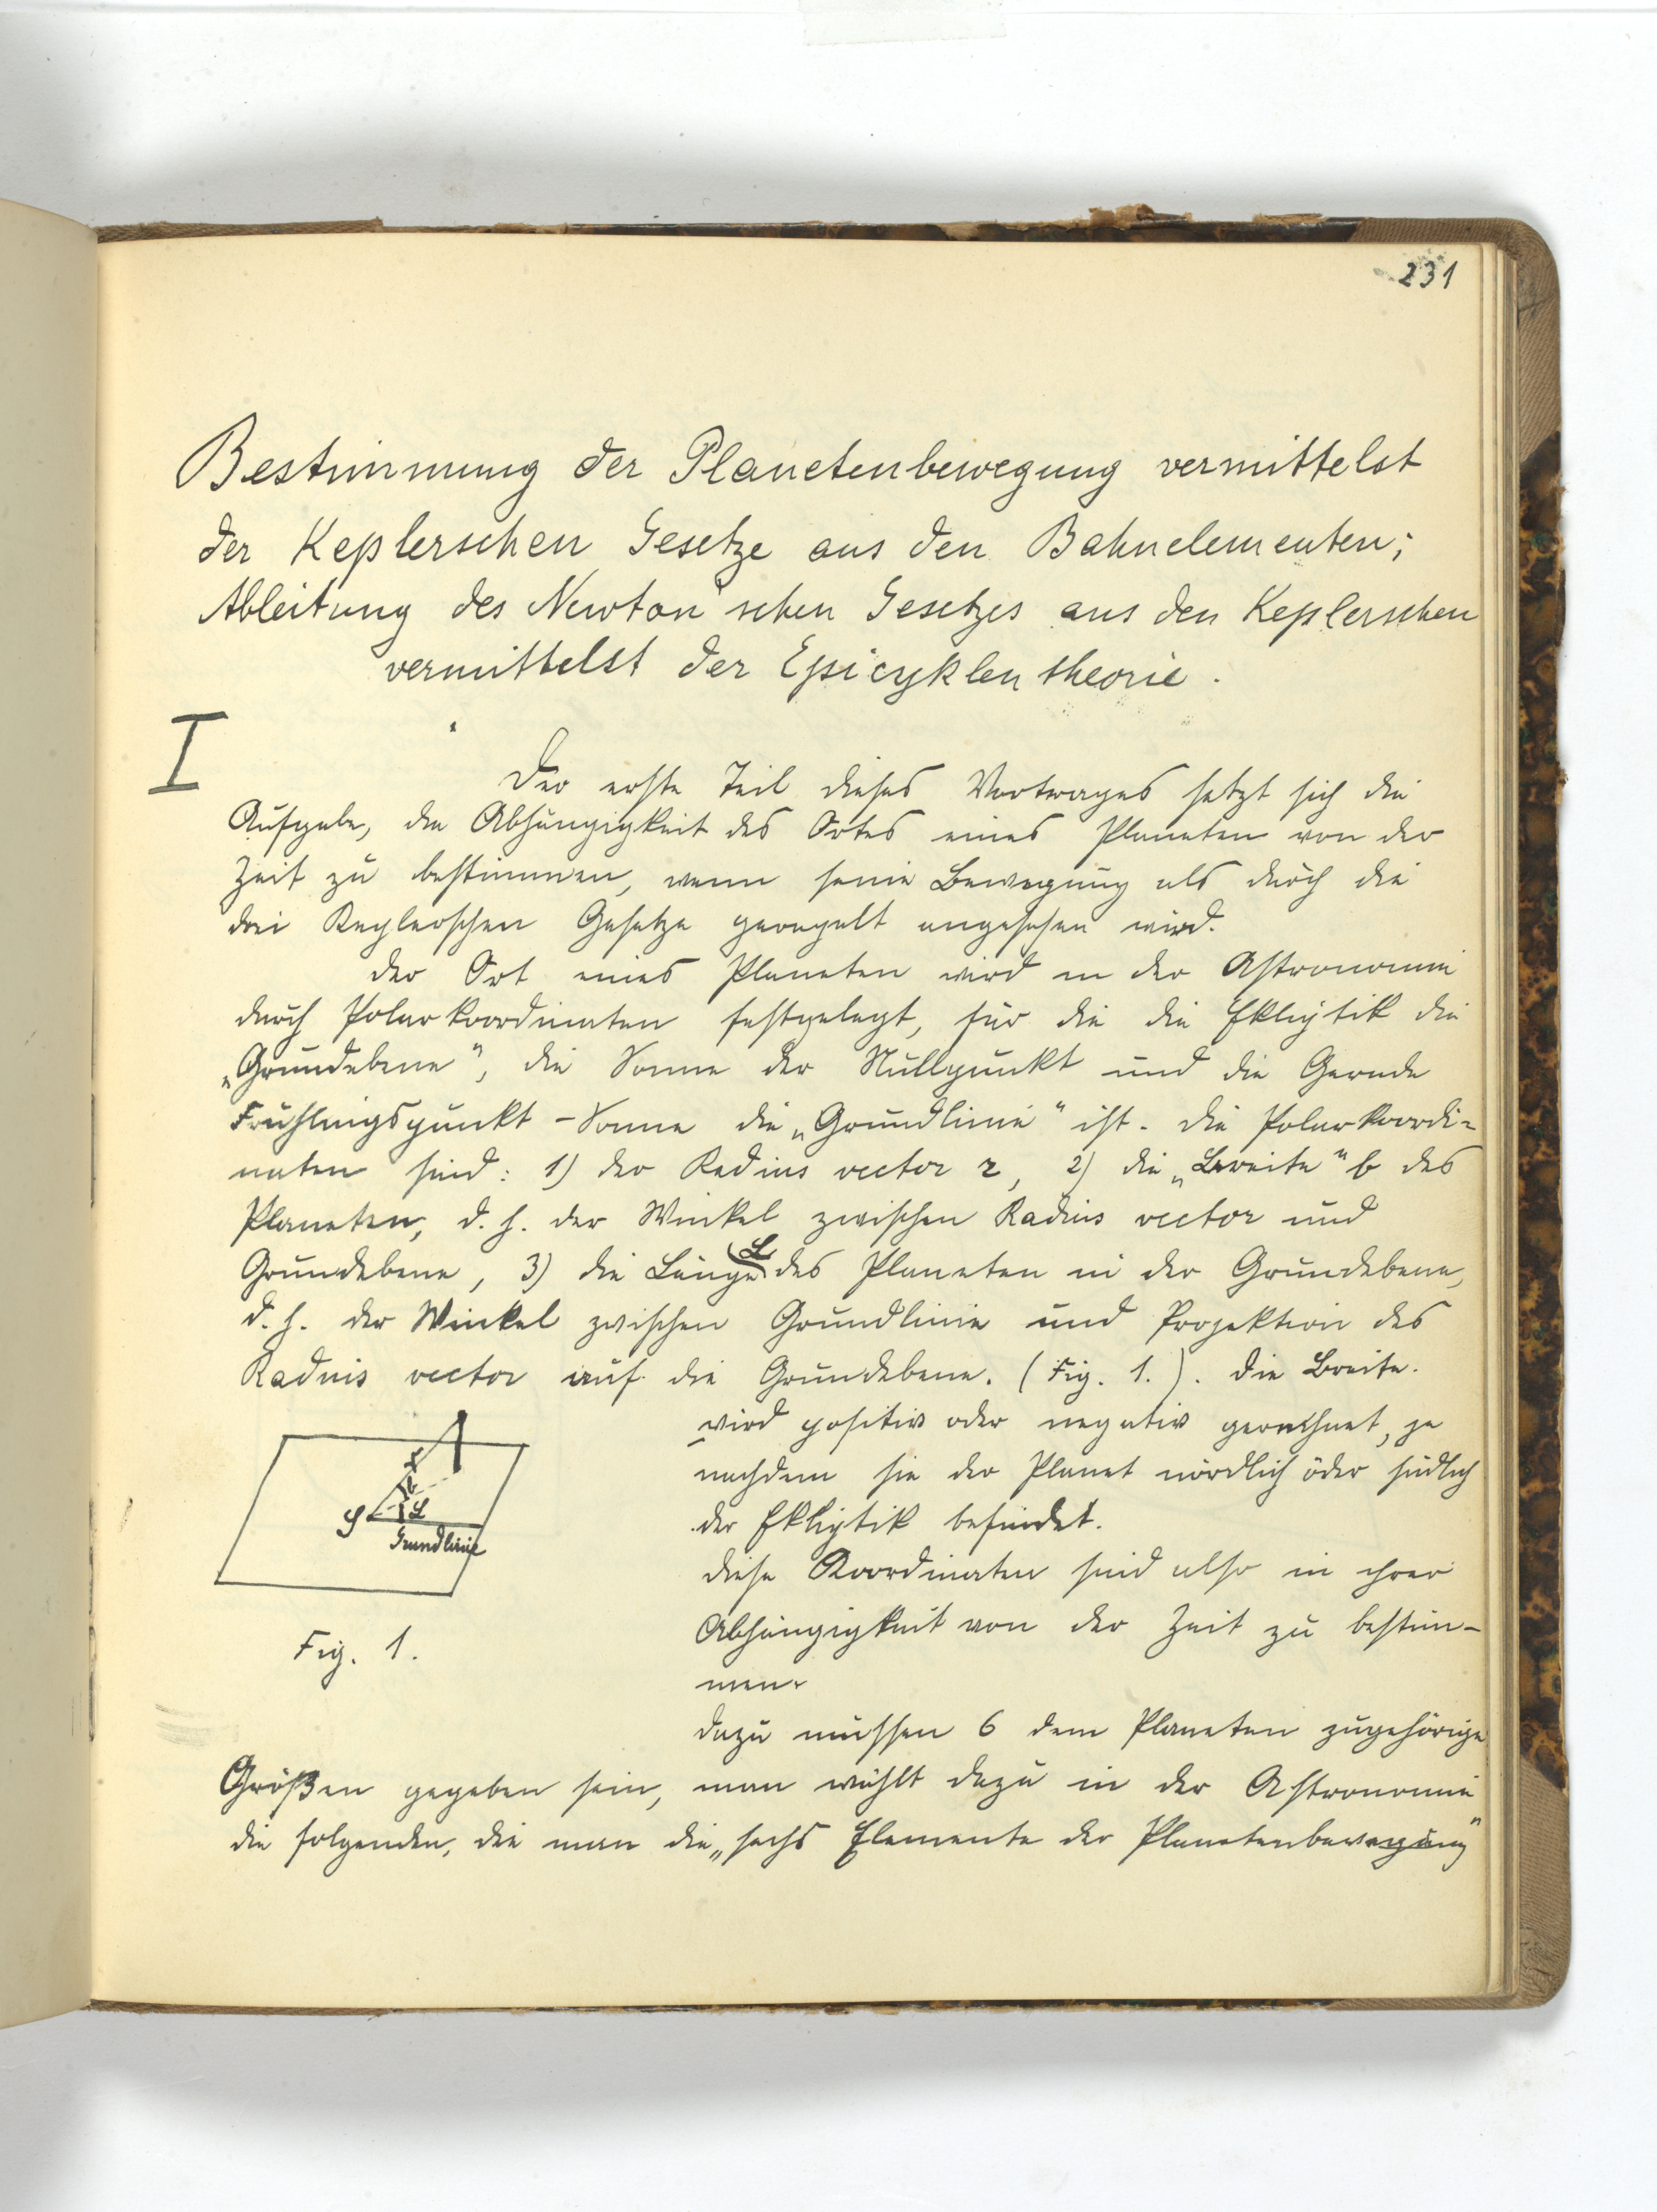 231
Bestimmung der Planetenbewegung vermittelst
der Keplerschen Gesetze aus den Bahnelementen;
Ableitung des Newton'schen Gesetzes aus den Keplerschen
vermittelst der Epicyklentheorie.
I
Der erste Teil dieses Vortrages setzt sich die
Aufgabe, die Abhängigkeit des Ortes eines Planeten von der
Zeit zu bestimmen, wenn seine Bewegung als durch die
drei Keplerschen Gesetze geregelt angesehen wird.
Der Ort eines Planeten wird in der Astronomie
durch Polarkoordinaten festgelegt, für die die Ekliptik die
„Grundebene", die Sonne der Nullpunkt und die Gerade
Frühlingspunkt-Sonne die „Grundlinie" ist. Die Polarkoordi=
naten sind: 1) der Radius vector r, 2) die „Breite" b des
Planeten, d. h. der Winkel zwischen Radius vector und
Grundebene, 3) die Länge L des Planeten in der Grundebene,
d. h. der Winkel zwischen Grundlinie und Projektion des
Radius vector auf die Grundebene. (Fig. 1.). Die Breite
wird positiv oder negativ gerechnet, je
nachdem sie der Planet nördlich oder südlich
der Ekliptik befindet.
Diese Koordinaten sind also in ihrer
Abhängigkeit von der Zeit zu bestim-
men.
r
b
L
S
Grundlinie
Fig. 1.
Dazu müssen 6 dem Planeten zugehörige
Größen gegeben sein, man wählt dazu in der Astronomie
die folgenden, die man die „sechs Elemente der Planetenbewegung"